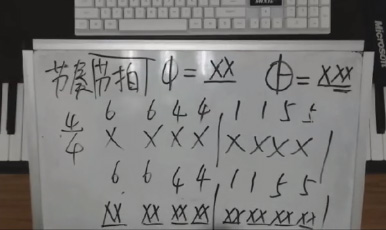 节奏 节拍 φ = XX ⊕ = XXX
6 6 4 4 | 1 1 5 5
4/4 X X X X | X X X X |
6 6 4 4 | 1 1 5 5
XX XX XX XX | XX XX XX XX |
Microsoft